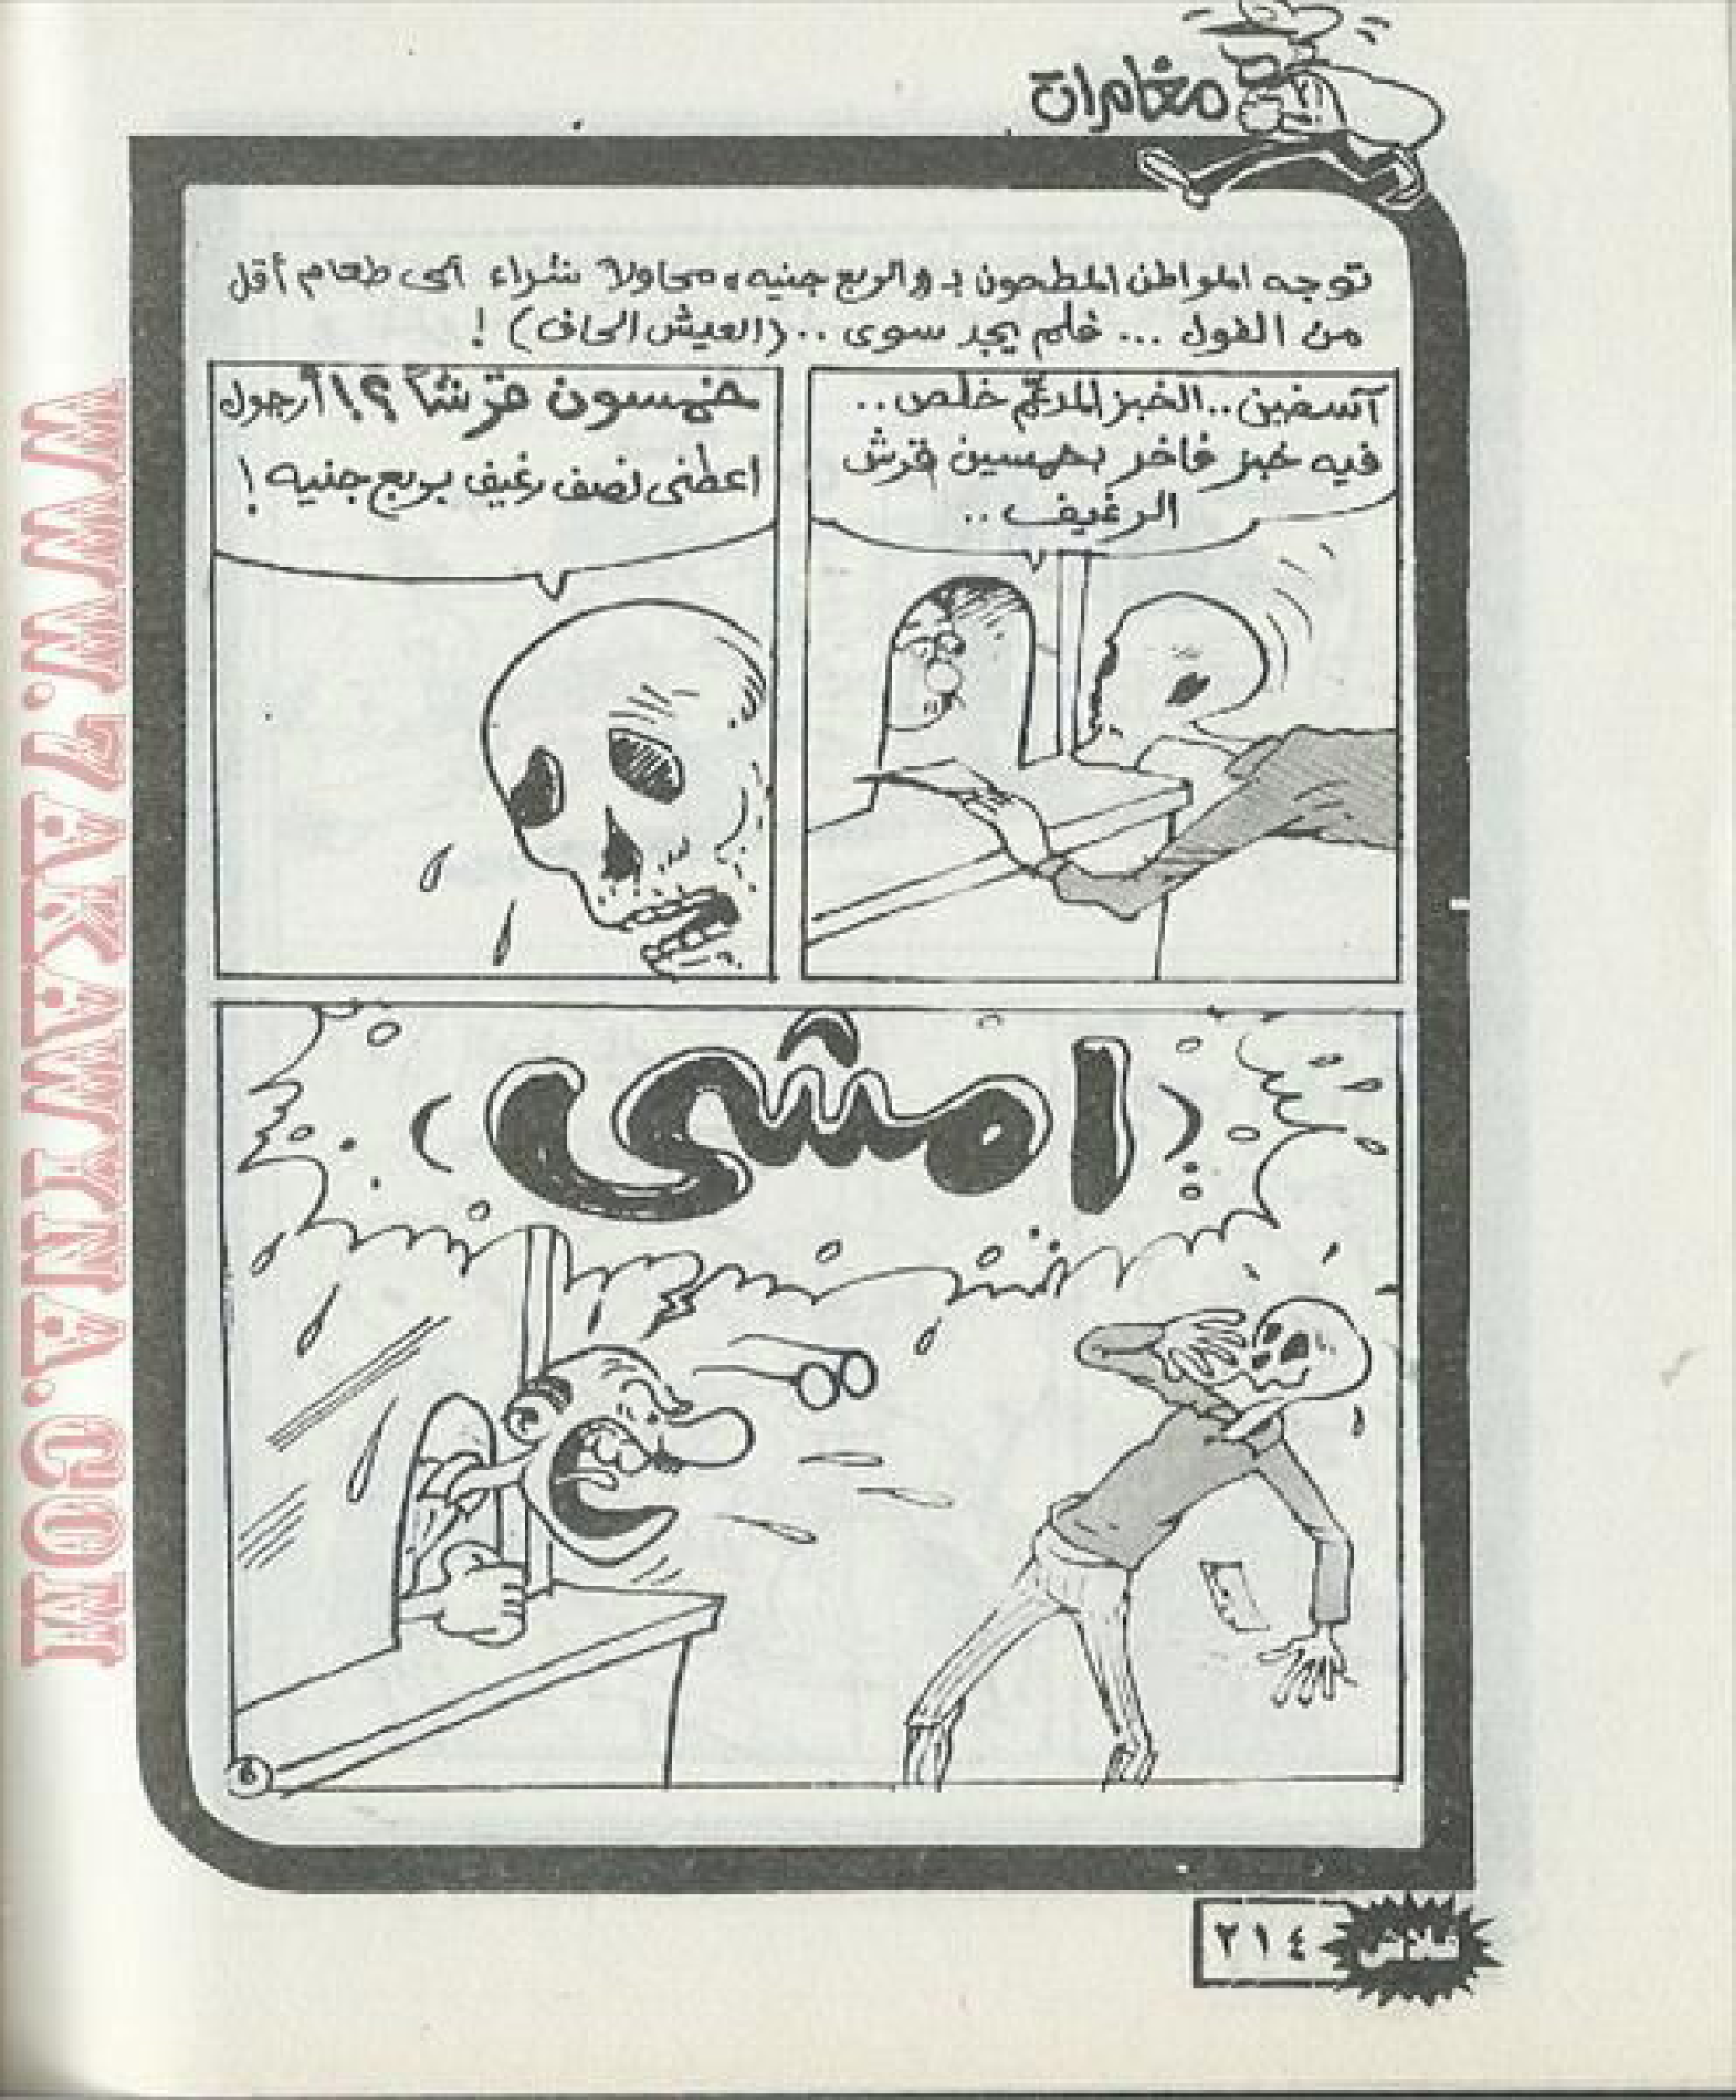 مغامرات
توجه المواطن المطحون بـ «الربع جنيه» محاولاً شراء أى طعام أقل
من الفول ... فلم يجد سوى .. (العيش الحاف) !
آسفين .. الخبز المدعّم خلص ..
فيه خبز فاخر بخمسين قرش
الرغيف ..
خمسون قرشاً ؟! أرجوك
اعطنى نصف رغيف بربع جنيه !
(امشى)
6
فلاش
٢١٤
WWW.ZAKAWTNA.COM